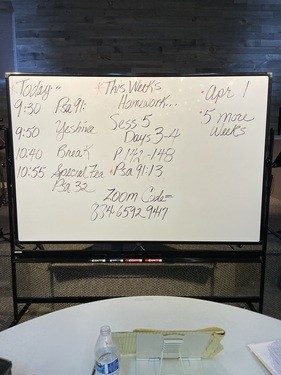 Today..
9:30 Psa 91:
9:50 Yeshiva
10:40 Break
10:55 Special Fea
Psa 32
This Weeks
Homework...
Sess 5
Days 3-4
P 142-148
Psa 91:13
Zoom Code=
834 6592 9417
Apr 1
5 More
Weeks